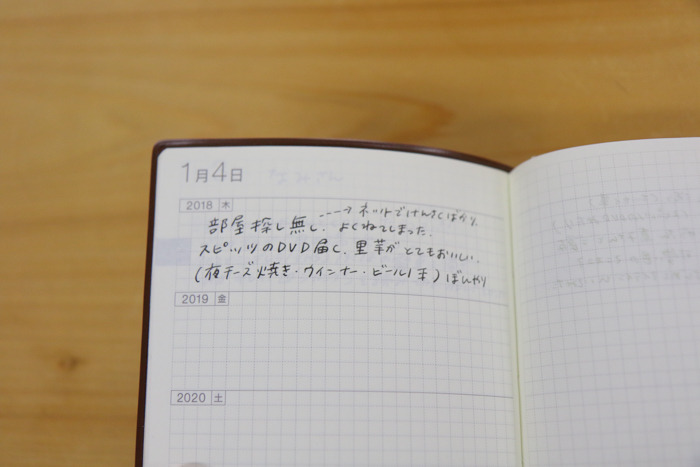 1月4日
2018 木
---→ ネットでけんさくばかり.
部屋探し無し. よくねてしまった.
スピッツのDVD届く. 里芋がとてもおいしい.
(夜チーズ焼き・ウインナー・ビール1本) ぼんやり
2019 金
2020 土